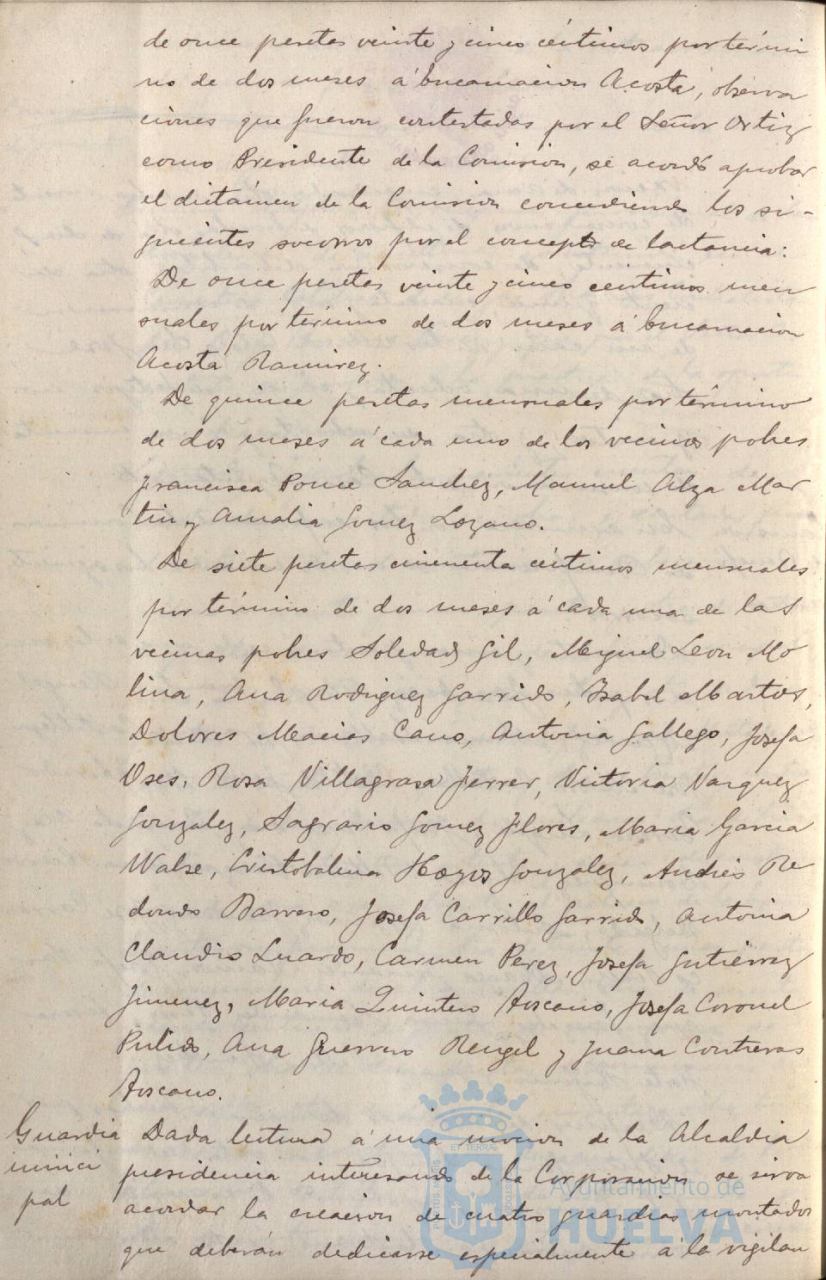 de once pesetas veinte y cinco céntimos por térmi
no de dos meses á Encarnacion Acosta, observa
ciones que fueron contestadas por el Señor Ortiz
como Presidente de la Comision, se acordó aprobar
el dictámen de la Comision concediendo los si-
guientes socorros por el concepto de lactancia:
De once pesetas veinte y cinco centimos men
suales por término de dos meses á Encarnacion
Acosta Ramirez.
De quince pesetas mensuales por término
de dos meses á cada uno de los vecinos pobres
Francisca Ponce Sanchez, Manuel Alza Mar
tin y Amalia Gomez Lozano.
De siete pesetas cincuenta céntimos mensuales
por término de dos meses á cada una de las
vecinas pobres Soledad Gil, Miguel Leon Mo
lina, Ana Rodriguez Garrido, Isabel Martos,
Dolores Macias Cano, Antonia Gallego, Josefa
Oses, Rosa Villagrasa Ferrer, Victoria Vazquez
Gonzalez, Sagrario Gomez Flores, Maria Garcia
Cristobalina Hoyos Gonzalez, Andrés Re
dondo Barrero, Josefa Carrillo Garrido, Antonia
Claudio Luardo, Carmen Perez, Josefa Gutiérrez
Jimenez, Maria Quintero Toscano, Josefa Coronel
Pulido, Ana Guerrero Rengel y Juana Contreras
Toscano.
Guardia
munici
pal
Dada lectura á una mocion de la Alcaldia
presidencia interesando de la Corporacion se sirva
acordar la creacion de cuatro guardias montados
que deberán dedicarse especialmente á la vigilan
Ayuntamiento de
HUELVA